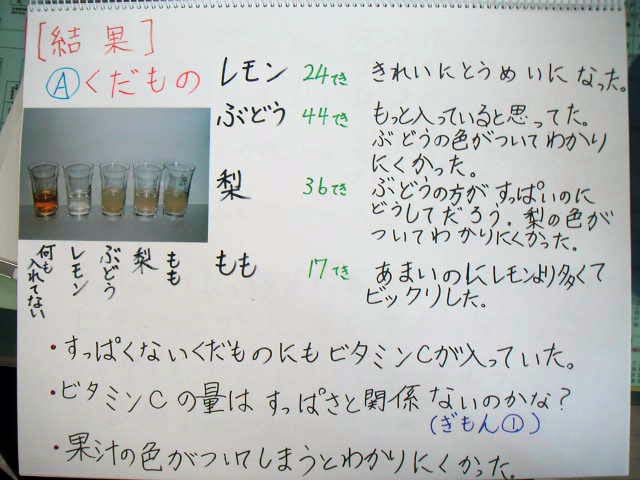 [結果]
Ⓐくだもの
レモン 24てき きれいにとうめいになった。
ぶどう 44てき もっと入っていると思ってた。
ぶどうの色がついてわかり
にくかった。
梨 36てき ぶどうの方がすっぱいのに
どうしてだろう。梨の色が
ついてわかりにくかった。
もも 17てき あまいのにレモンより多くて
ビックリした。
何も入れてない
レモン
ぶどう
梨
もも
・すっぱくないくだものにもビタミンCが入っていた。
・ビタミンCの量はすっぱさと関係ないのかな?
(ぎもん①)
・果汁の色がついてしまうとわかりにくかった。